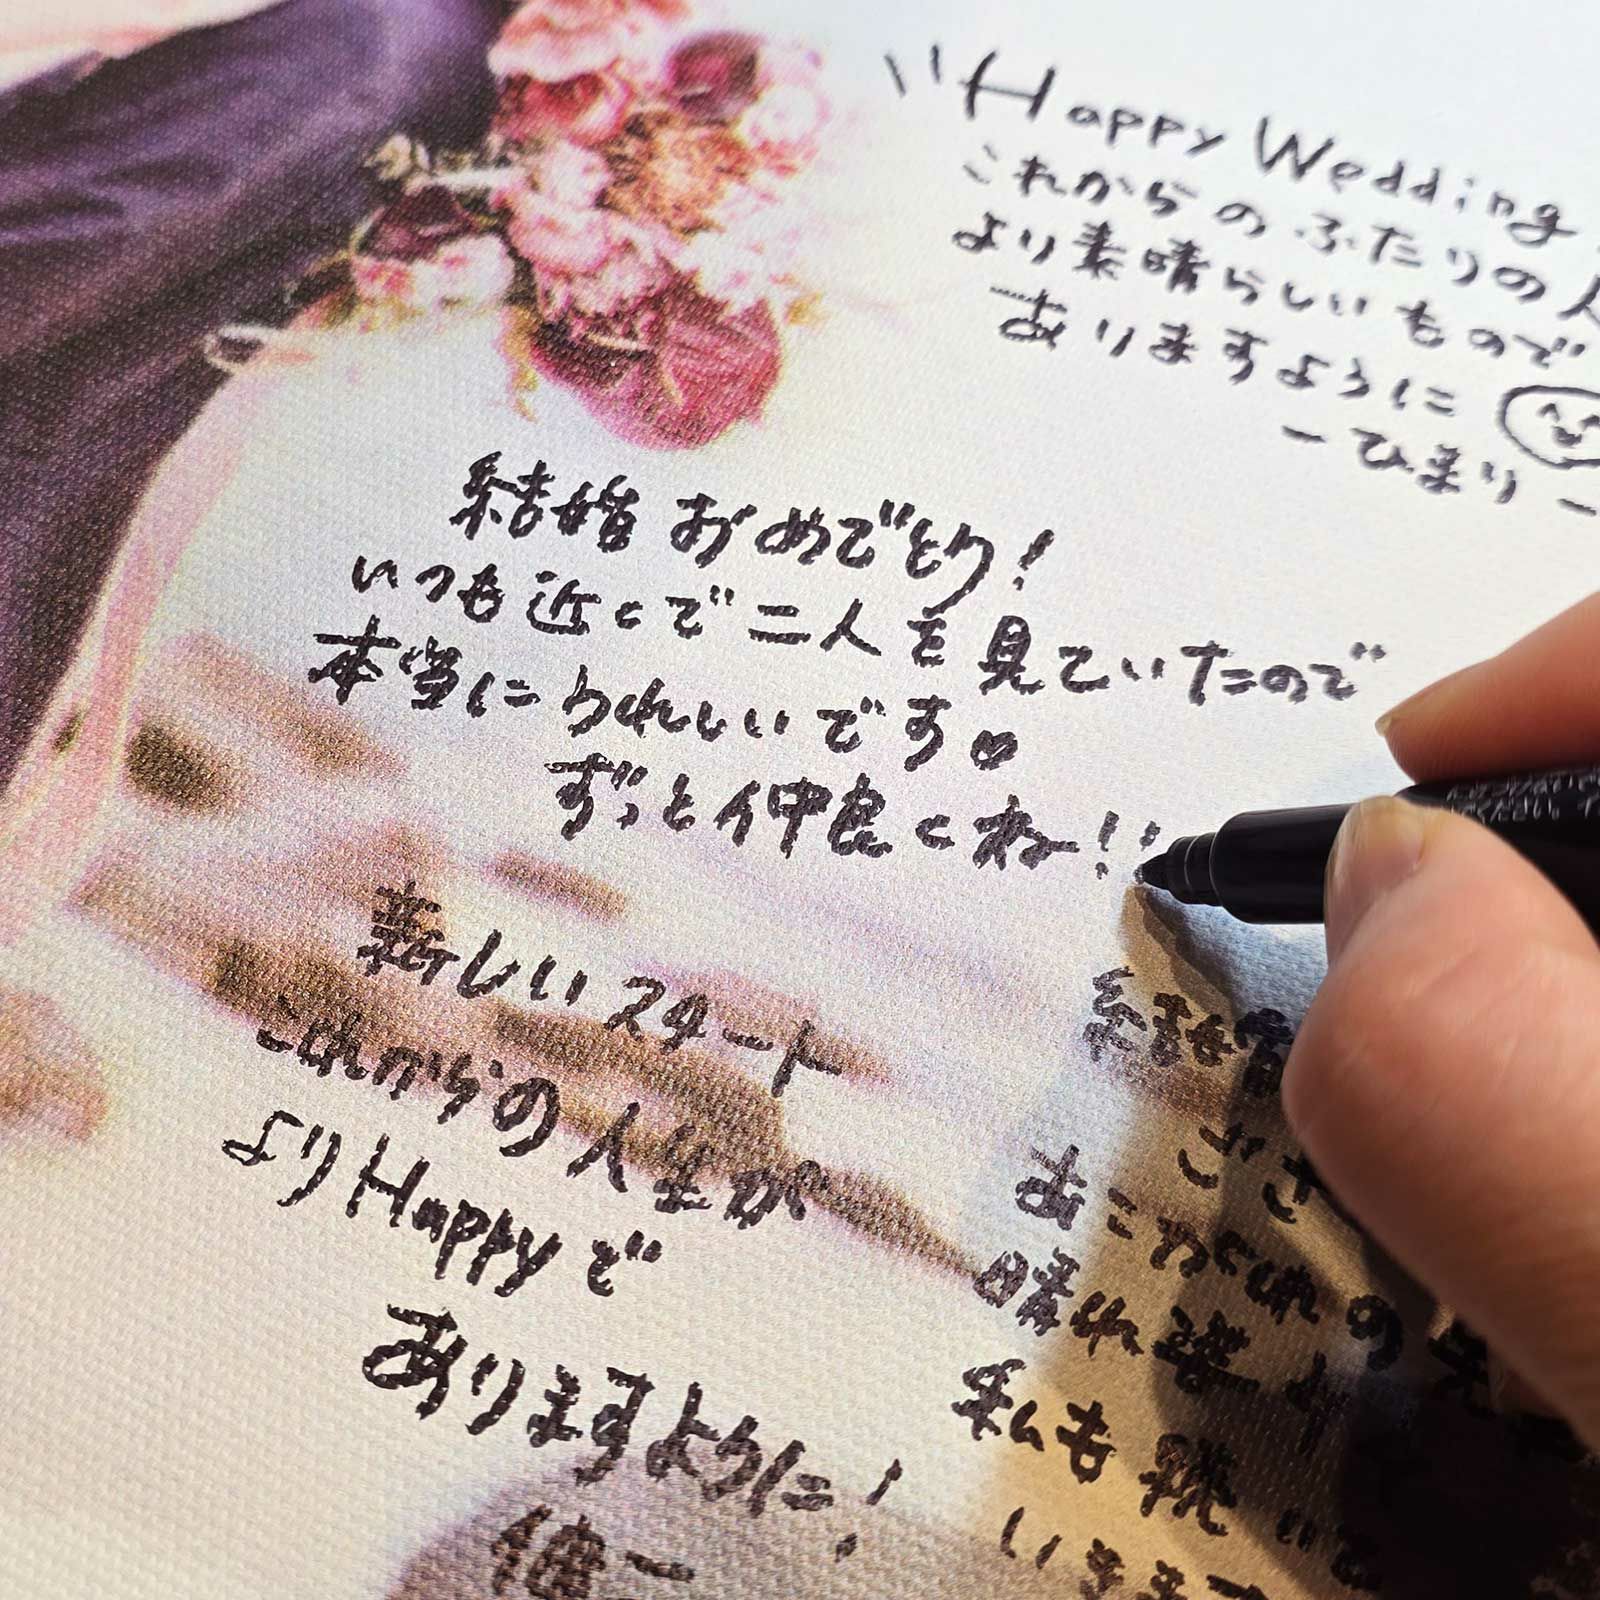 Happy Wedding
これからのふたりの人
より素晴らしいもので
ありますように
-ひまり-
結婚おめでとう!
いつも近くで二人を見ていたので
本当にうれしいです♡
ずっと仲良くね!!
新しいスタート
これからの人生が
よりHappyで
ありますように!
健一
結婚
ござ
あこがれの
晴れ姿
私も
います